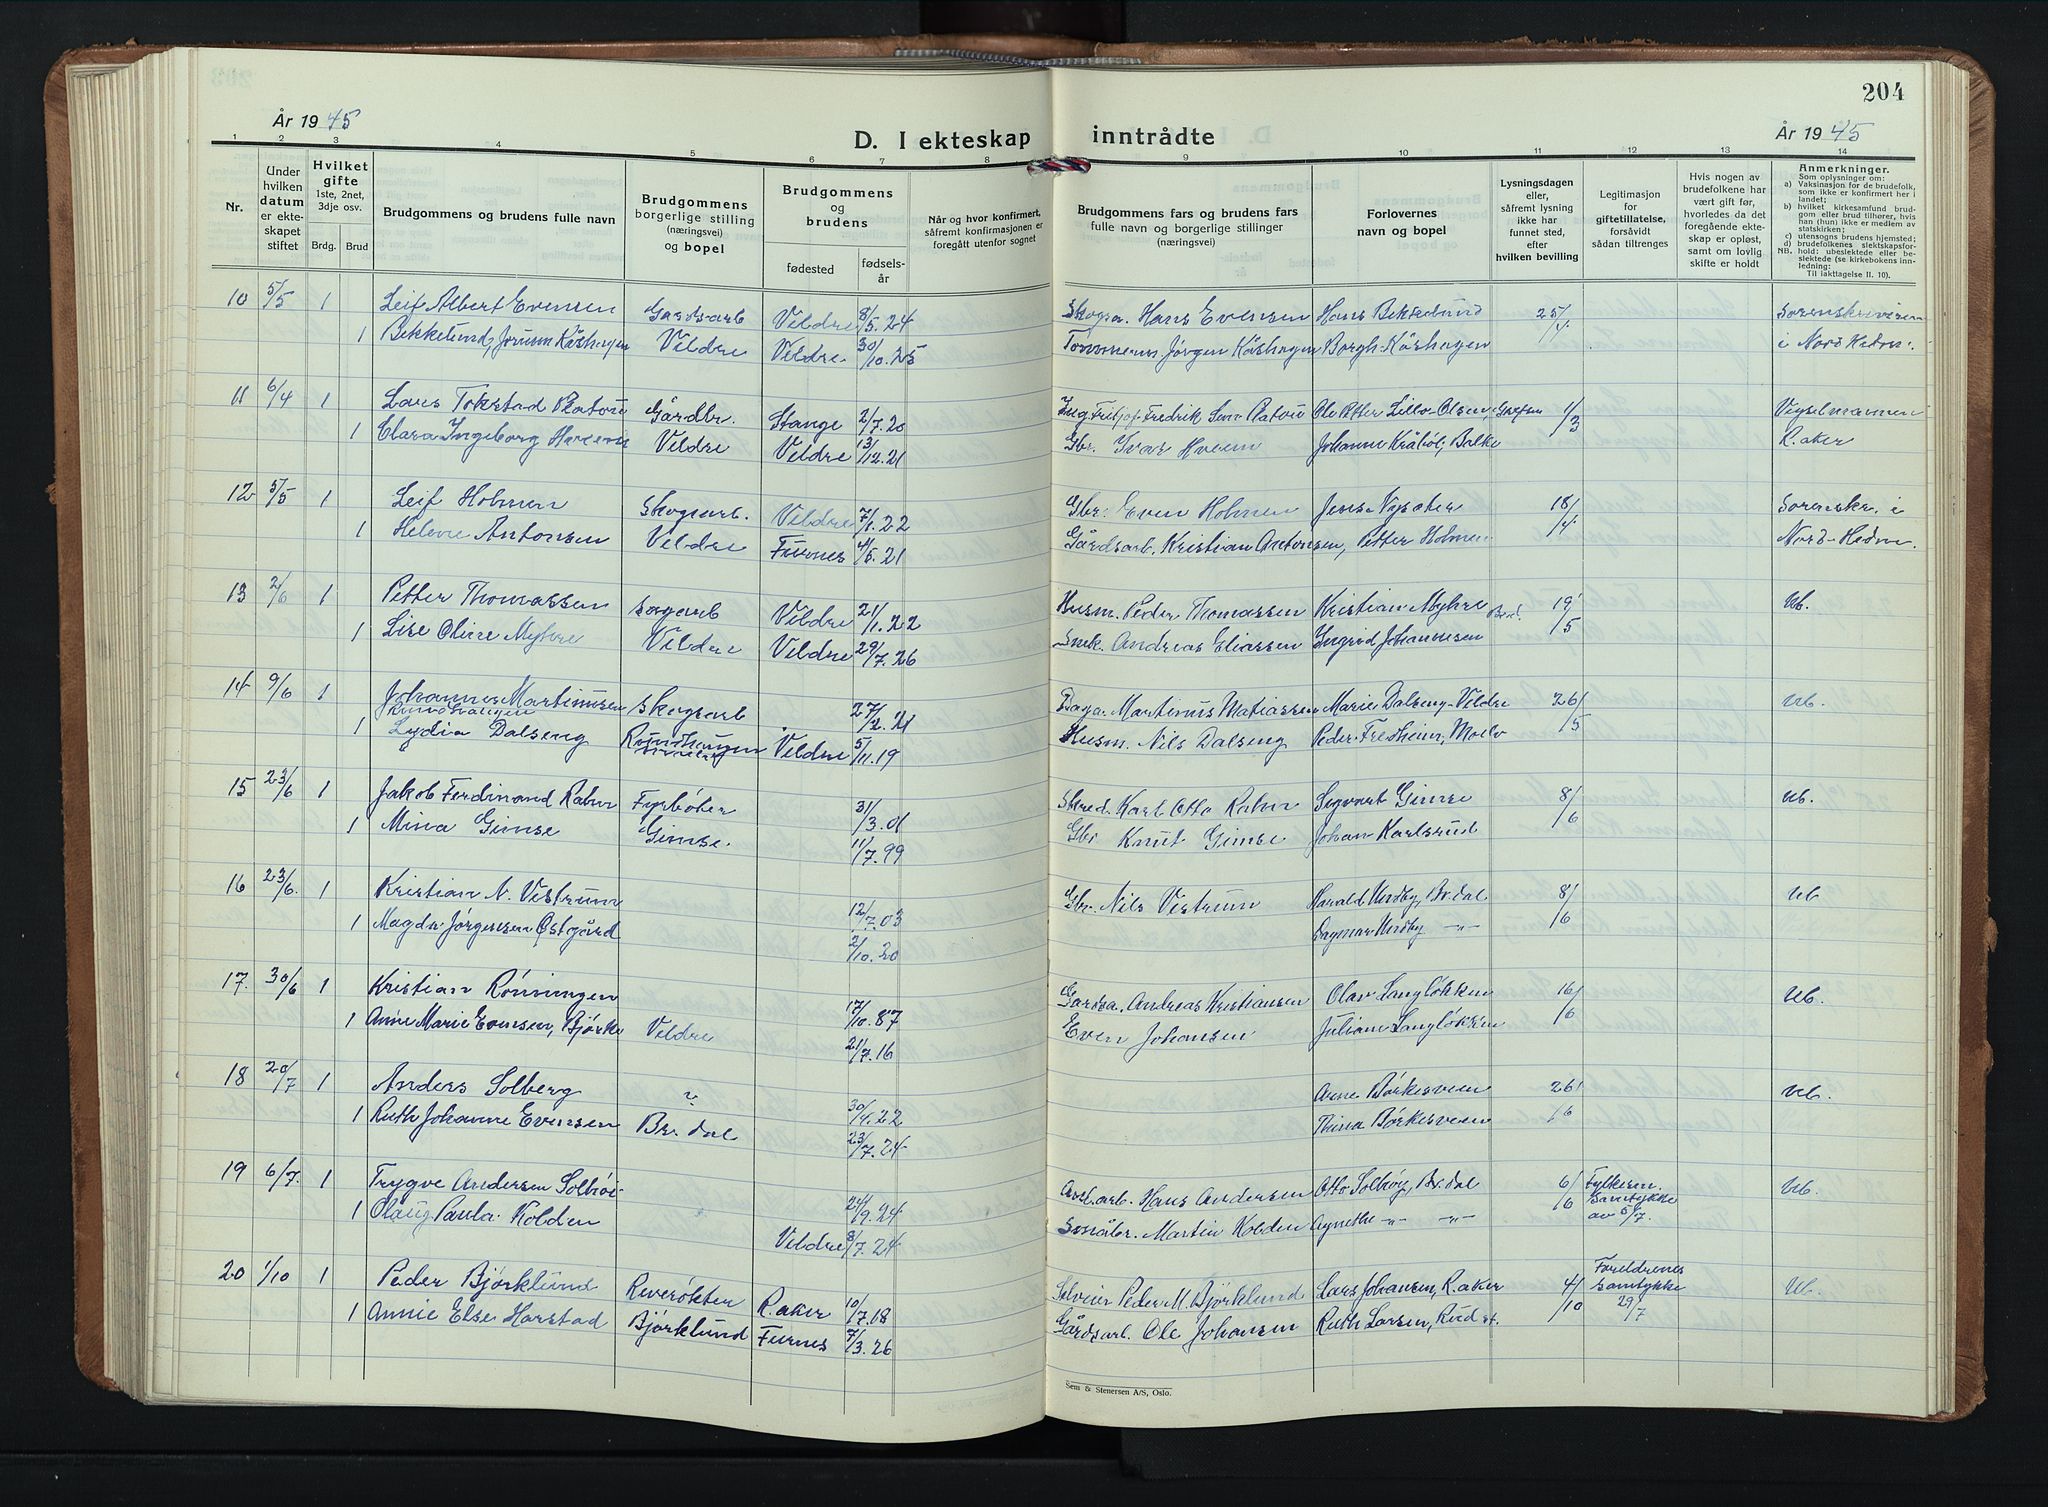 204
År 1945
År 1945
D. I ekteskap inntrådte
1 2 3 4 5 6 7 8 9 10 11 12 13 14
Nr.
Under hvilken datum er ekteskapet stiftet
Hvilket gifte
1ste, 2net, 3dje osv.
Brdg. Brud
Brudgommens og brudens fulle navn
Brudgommens borgerlige stilling (næringsvei) og bopel
Brudgommens og brudens
fødested
fødselsår
Når og hvor konfirmert, såfremt konfirmasjonen er foregått utenfor sognet
Brudgommens fars og brudens fars fulle navn og borgerlige stillinger (næringsvei)
Forlovernes navn og bopel
Lysningsdagen eller, såfremt lysning ikke har funnet sted, efter hvilken bevilling
Legitimasjon for giftetillatelse, forsåvidt sådan tiltrenges
Hvis nogen av brudefolkene har vært gift før, hvorledes da det foregående ekteskap er opløst, samt om lovlig skifte er holdt
Anmerkninger.
Som oplysninger om:
a) Vaksinasjon for de brudefolk, som ikke er konfirmert her i landet;
b) hvilket kirkesamfund brudgom eller brud tilhører, hvis han (hun) ikke er medlem av statskirken;
c) utensogns brudens hjemsted;
d) brudefolkenes slektskapsforhold: ubeslektede eller beslektede (se kirkebokens innledning:
NB. Til iakttagelse II. 10).
10 5/5 1 Leif Albert Evensen Gardsarb Veldre 8/5.24 Skogsa. Hans Evensen Hans Bekkelund 25/4 Sorenskriveren
1 Bekkelund, Jorunn Kåshagen Veldre Veldre 30/10.25 Tømmerm. Jørgen Kåshagen Borgh. Kåshagen i Nord Hedm.
11 6/4 1 Lars Tokstad Platou Gårdbr. Stange 2/7.20 Ing. Fritjof Fredrik Platou Ole Petter Lillo-Olsen, Grefsen 1/3 Vigselmannen
1 Clara Ingeborg Hveem Veldre Veldre 13/12.21 Gbr. Ivar Hveem Johanne Kråbøl, Balke R.aker
12 5/5 1 Leif Holmen Skogsarb. Veldre 7/1.22 Gbr. Even Holmen Jens Nysæter 18/4 Sorenskr. i
1 Helene Antonsen Veldre Furnes 4/5.21 Gårdsarb. Kristian Antonsen, Petter Holmen Nord-Hedm.
13 2/6 1 Petter Thomassen Sagarb Veldre 21/1.22 Husm. Peder Thomassen Kristian Myhre 19/5 Ub.
1 Lise Oline Myhre Veldre Veldre 29/7.26 Snik. Andreas Eliassen Ingrid Johannesen
14 9/6 1 Johannes Martinussen Skogsarb 27/2.21 Martinus Matiassen Marie Dalseng - Veldre 26/5 Ub.
1 Lydia Dalseng Veldre 5/11.19 Husm. Nils Dalseng Peder Fredheim, Moelv
15 23/6 1 Jakob Ferdinand Rahn Fyrbøter 31/3.01 Skred. Karl Otto Rahn Sigvart Gimse 8/6 Ub.
1 Mina Gimse Gimse. 11/7.99 Gbr Knut Gimse Johan Karlsrud
16 23/6. 1 Kristian N. Vestrum 12/7.03 Gbr. Nils Vestrum Harald Undby, Br.dal 8/6 Ub
1 Magda Jørgensen Østgård 2/10.20 Dagmar Undby -"-
17. 30/6 1 Kristian Rønningen 17/10.87 Gardsa. Andreas Kristiansen Olav Langløkken 16/6 Ub.
1 Anne Marie Evensen, Bjørke Veldre 21/7.16 Even Johansen Juliane Langløkken
18 20/7 1 Anders Solberg ? 30/4.22 Arne Børkesveen 26/6 Ub.
1 Ruth Johanne Evensen Br. dal 23/7.24 Thina Børkesveen
19 6/7. 1 Trygve Andersen Solhøi 24/9.24 Hans Andersen Otto Solhøy, Br.dal 6/6 Fylkesm. Samtykke av 5/7. Ub.
1 Olaug Paula Kolden Veldre 3/7.24 Småbr. Martin Kolden Agnethe -"- -"-
20 1/10 1 Peder Bjørklund Reverøkter R.aker 10/7.18 Peder M. Bjørklund Lars Johansen, R.aker 4/10 Foreldrenes Samtykke 29/7 Ub.
1 Annie Else Harstad Bjørklund Furnes 7/3.26 Gårdsarb. Ole Johansen Ruth Larsen, Rudst.
Sem & Stenersen A/S, Oslo.